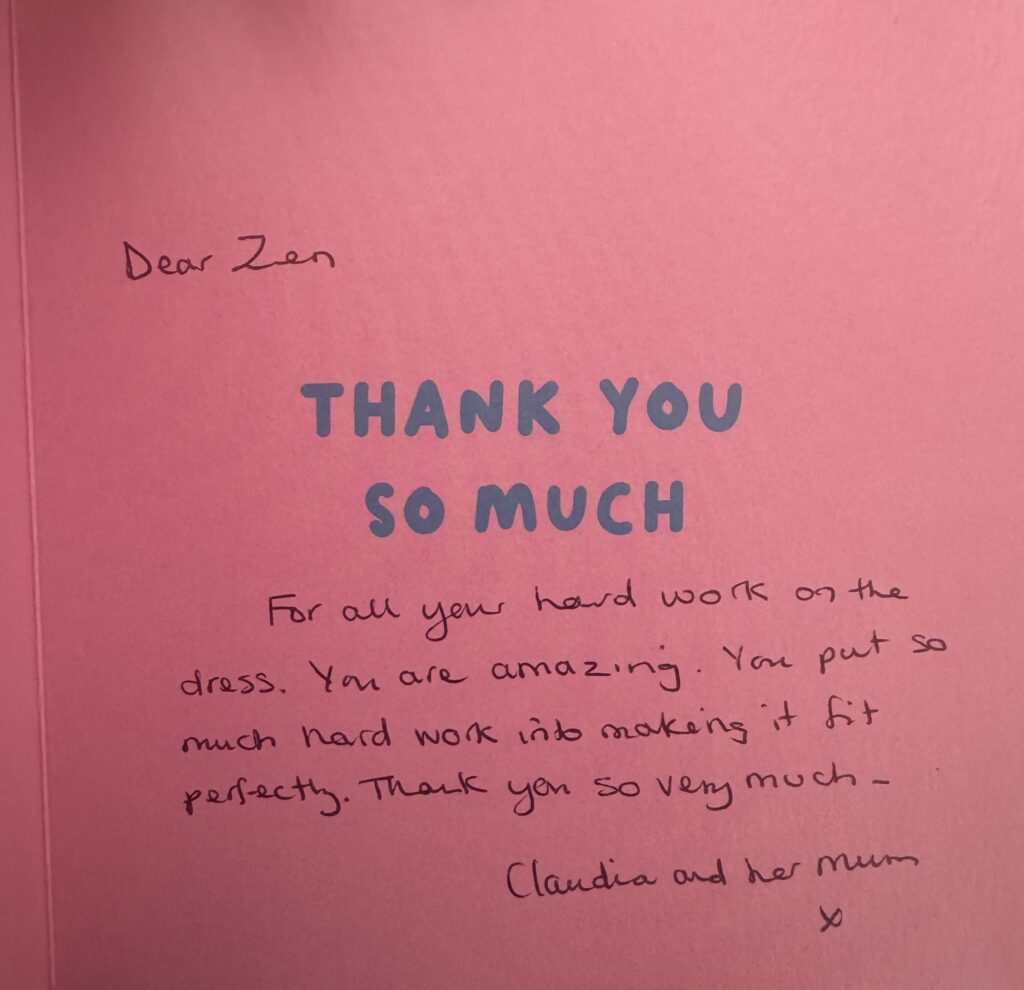 Dear Zen
THANK YOU
SO MUCH
For all your hard work on the
dress. You are amazing. You put so
much hard work into making it fit
perfectly. Thank you so very much -
Claudia and her mum
x